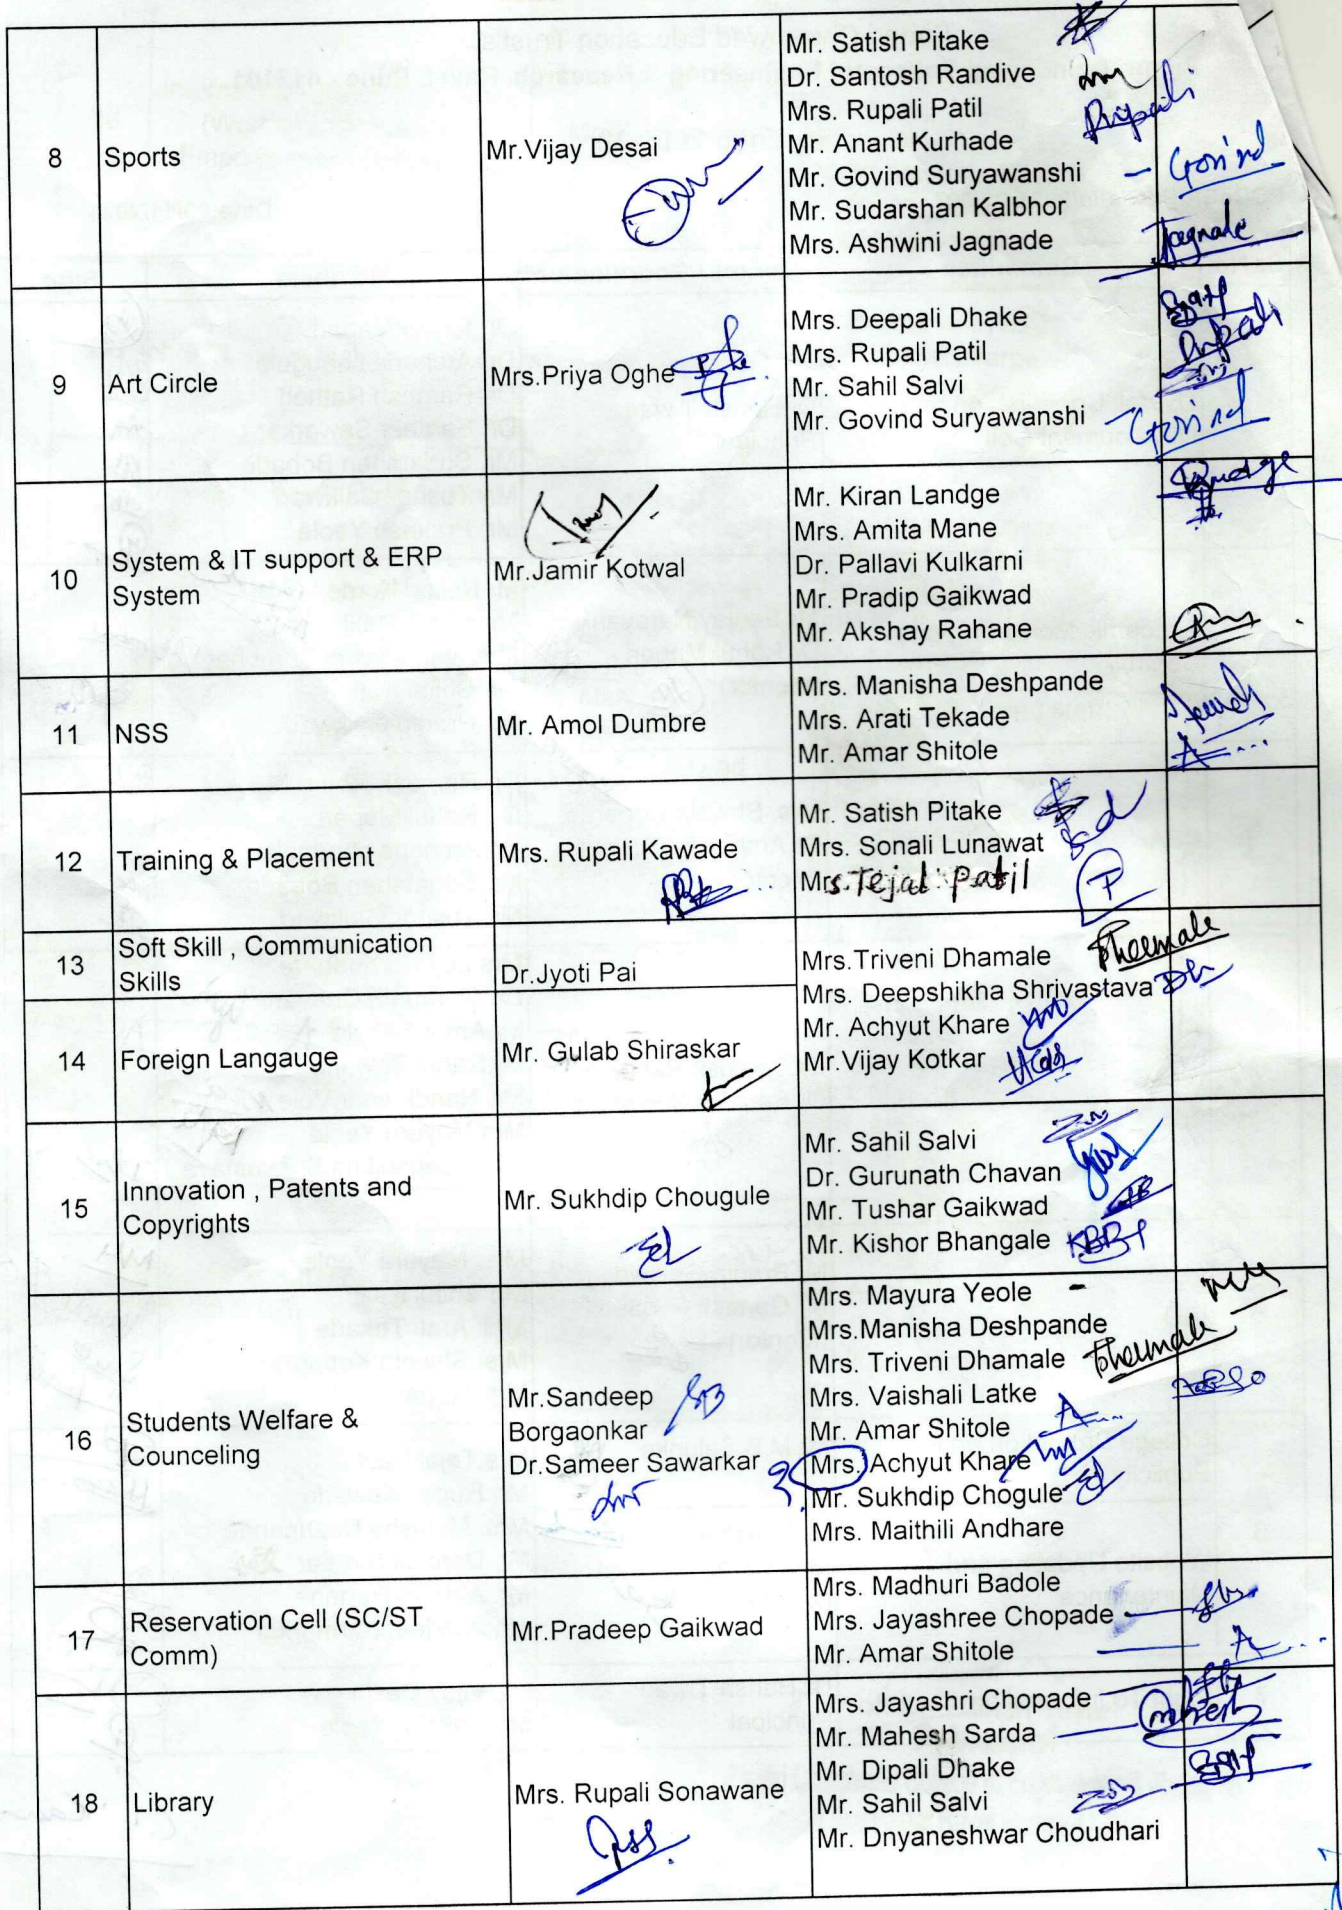 8
Sports
Mr.Vijay Desai
Mr. Satish Pitake
Dr. Santosh Randive
Mrs. Rupali Patil
Mr. Anant Kurhade
Mr. Govind Suryawanshi
Mr. Sudarshan Kalbhor
Mrs. Ashwini Jagnade
Rupali
- Govind
Jagnade
9
Art Circle
Mrs.Priya Oghe
Mrs. Deepali Dhake
Mrs. Rupali Patil
Mr. Sahil Salvi
Mr. Govind Suryawanshi
Rupali
Govind
10
System & IT support & ERP
System
Mr.Jamir Kotwal
Mr. Kiran Landge
Mrs. Amita Mane
Dr. Pallavi Kulkarni
Mr. Pradip Gaikwad
Mr. Akshay Rahane
11
NSS
Mr. Amol Dumbre
Mrs. Manisha Deshpande
Mrs. Arati Tekade
Mr. Amar Shitole
12
Training & Placement
Mrs. Rupali Kawade
Mr. Satish Pitake
Mrs. Sonali Lunawat
Mrs. Tejal Patil
13
Soft Skill , Communication
Skills
Dr.Jyoti Pai
Mrs.Triveni Dhamale
Mrs. Deepshikha Shrivastava
Mr. Achyut Khare
Mr.Vijay Kotkar
14
Foreign Langauge
Mr. Gulab Shiraskar
15
Innovation , Patents and
Copyrights
Mr. Sukhdip Chougule
Mr. Sahil Salvi
Dr. Gurunath Chavan
Mr. Tushar Gaikwad
Mr. Kishor Bhangale
16
Students Welfare &
Counceling
Mr.Sandeep
Borgaonkar
Dr.Sameer Sawarkar
Mrs. Mayura Yeole
Mrs.Manisha Deshpande
Mrs. Triveni Dhamale
Mrs. Vaishali Latke
Mr. Amar Shitole
Mrs. Achyut Khare
Mr. Sukhdip Chogule
Mrs. Maithili Andhare
17
Reservation Cell (SC/ST
Comm)
Mr.Pradeep Gaikwad
Mrs. Madhuri Badole
Mrs. Jayashree Chopade
Mr. Amar Shitole
18
Library
Mrs. Rupali Sonawane
Mrs. Jayashri Chopade
Mr. Mahesh Sarda
Mr. Dipali Dhake
Mr. Sahil Salvi
Mr. Dnyaneshwar Choudhari